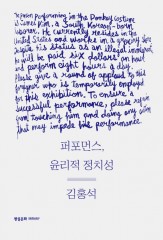 person performing in the Donkey costume
is
laborer. He currently resides in the
United States and works in a
despite his status as an illegal immigrant
He will be paid six dollars an hour
and perform eight hours a day.
Please give a round of applause to this
person who is temporarily employed
for this exhibition. To ensure a
successful performance, please refrain
from touching him and doing any
that may impede his performance.
퍼포먼스,
윤리적 정치성
김홍석
현실문화